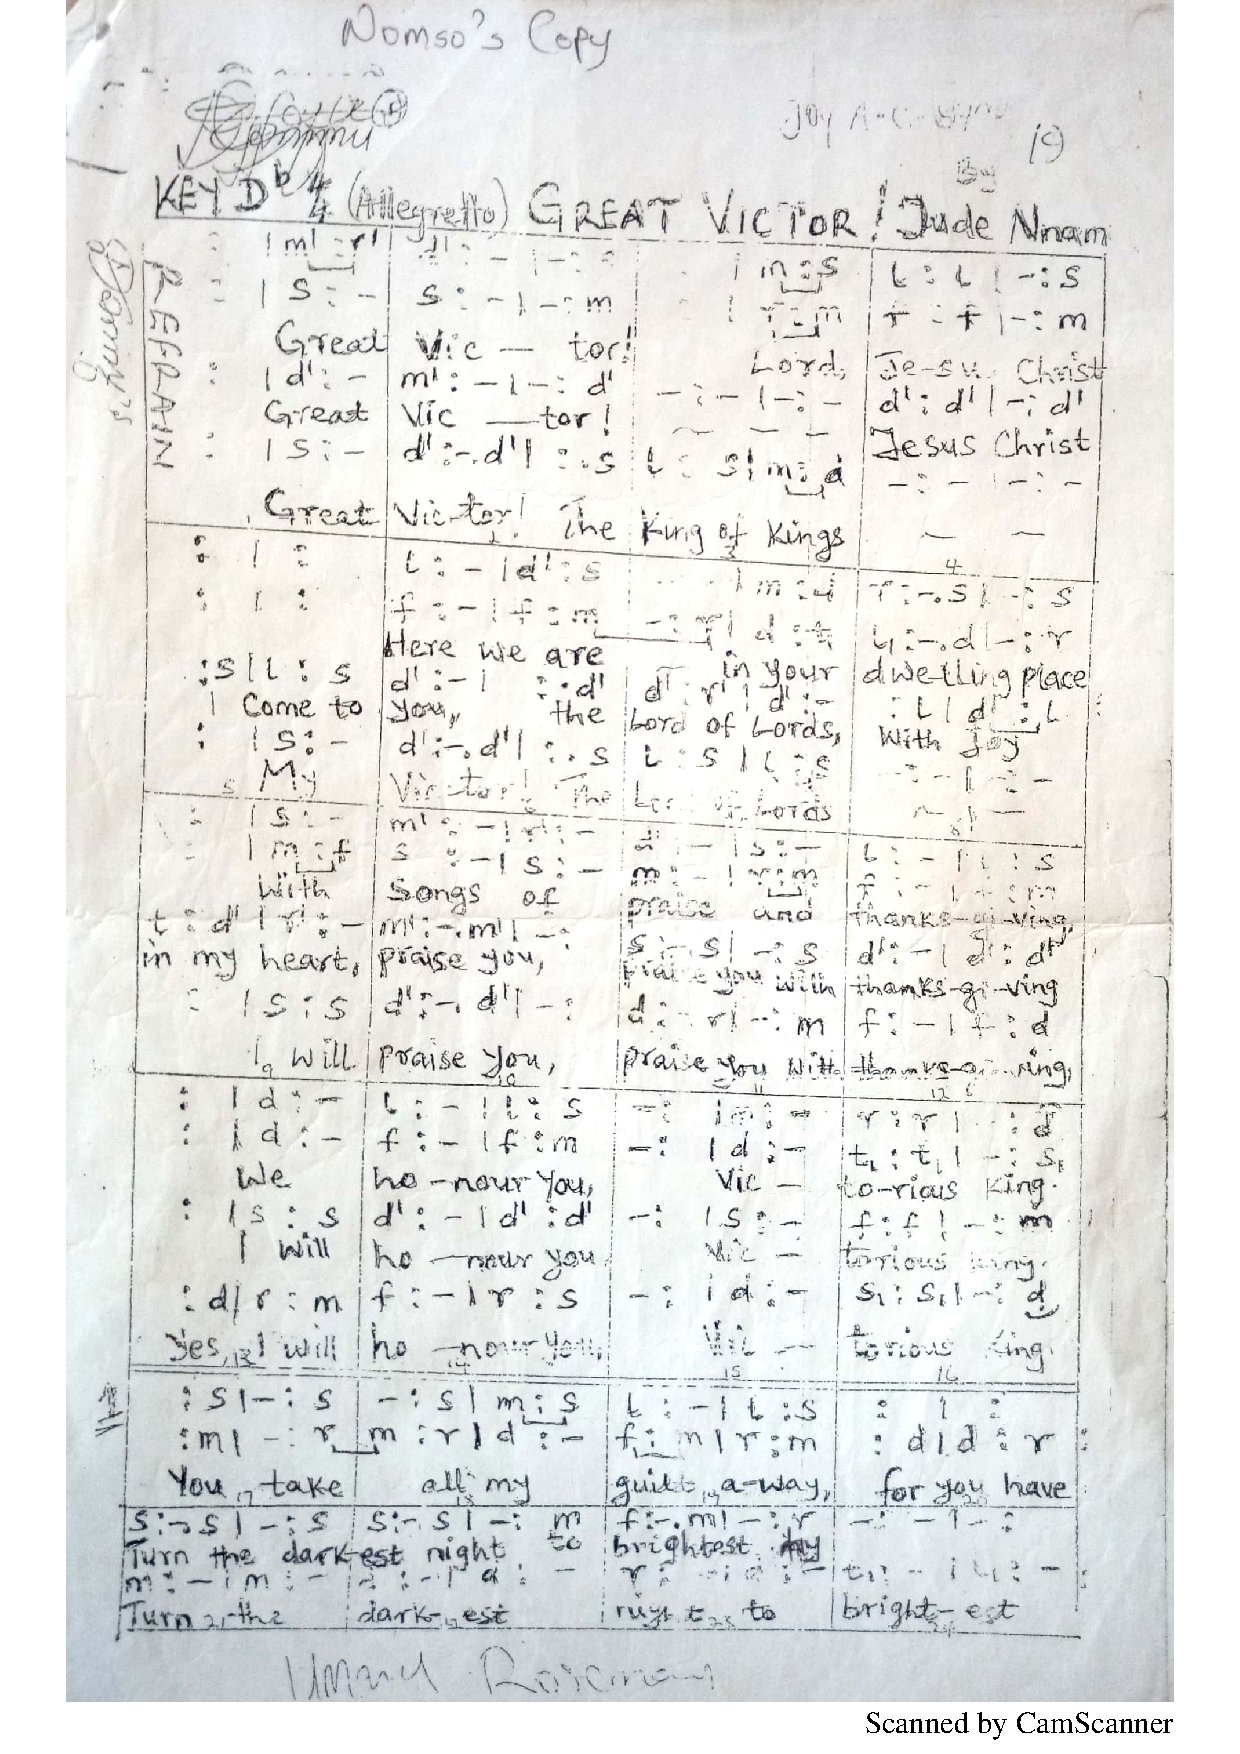 Nomso's Copy
19
By
KEY Db 4/4 (Allegretto) GREAT VICTOR! Jude Nnam
REFRAIN
: | m' : r' | d' : - | - : | m : s | l : l | - : s
: | s : - | s : - | - : m | r : m | f : f | - : m
Great Vic — tor! Lord, Je-su Christ
: | d' : - | m' : - | - : d' | - : - | - : - | d' : d' | - : d'
Great Vic — tor! Jesus Christ
: | s : - | d' : -. d' | : . s | l : s | m : d | - : - | - : -
Great Vic-tor! The King of Kings
: | : | l : - | d' : s | m : d | r : -. s | - : s
: | : | f : - | f : m | - : r | d : t, | l, : -. d | - : r
Here we are in your dwelling place
: s | l : s | d' : - | : . d' | d' : r' | d' : - | : l | d' : l
I Come to you, the Lord of Lords, with Joy
: | s : - | d' : -. d' | : . s | l : s | l : s | - : - | - : -
My Victor! The Lord of Lords
: | s : - | m' : - | r' : - | d' : - | s : - | l : - | l : s
: | m : f | s : - | s : - | m : - | r : m | f : - | f : m
With Songs of praise and thanks-gi-ving,
t : d' | r' : - | m' : -. m' | - : | s : -. s | - : s | d' : - | d' : d'
in my heart, praise you, praise you with thanks-gi-ving
: | s : s | d' : -. d' | - : | d : -. r | - : m | f : - | f : d
I will praise you, praise you with thanks-gi-ving,
: | d : - | l : - | l : s | - : | m : - | r : r | - : d
: | d : - | f : - | f : m | - : | d : - | t, : t, | - : s,
We ho-nour you, Vic — to-rious King.
: | s : s | d' : - | d' : d' | - : | s : - | f : f | - : m
I will ho — nour you Vic — torious king.
: d | r : m | f : - | r : s | - : | d : - | s, : s, | - : d
Yes, I will ho — nour you, Vic — torious King.
: s | - : s | - : s | m : s | l : - | l : s | : | :
: m | - : r | m : r | d : - | f : m | r : m | : d | d : r
You take all my guilt a-way, for you have
s : -. s | - : s | s : -. s | - : m | f : -. m | - : r | - : - | - :
Turn the dark-est night to brightest day
Turn the dark-est night to bright-est
Scanned by CamScanner